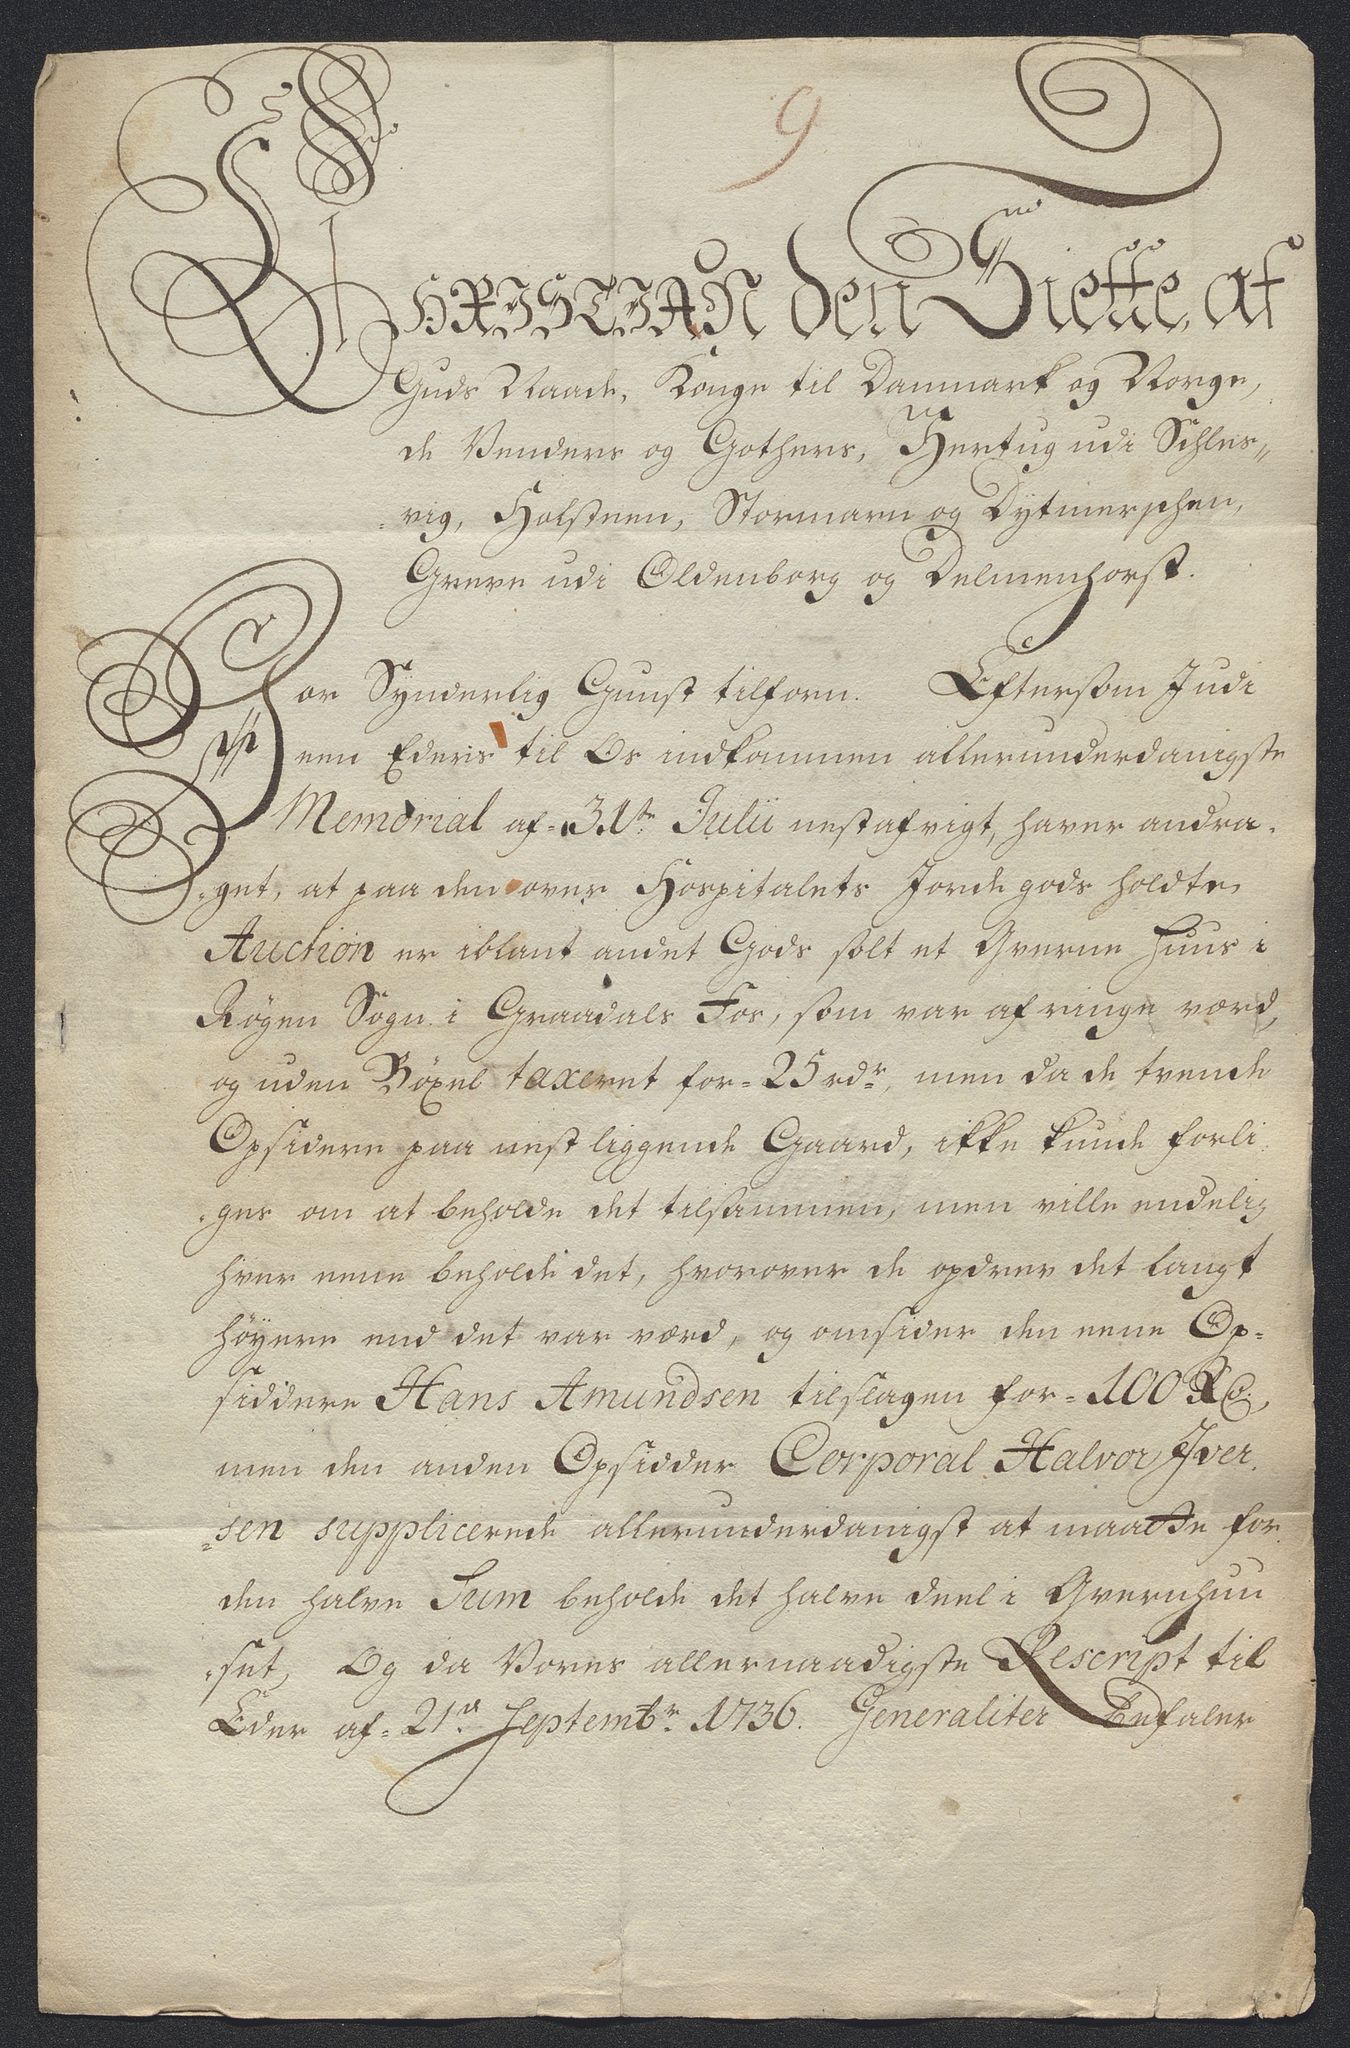 9
CHRISTIAN den Siette, af
Guds Naade, Konge til Danmark og Norge,
de Venders og Gothers, Hertug udi Schles,,
-vig, Holsteen, Stormarn og Dytmerschen,
Greve udi Oldenborg og Delmenhorst.
Vor Synderlig Gunst tilforn. Eftersom I udi
een Eders til Os indkommen allerunderdanigste
Memorial af=31te Julii nestafvigt, haver andra-
-get, at paa den over Hospitalets Jordegods holdte
Auction er iblant andet Gods solt et Qverne Huus i
Røgen Sogn i Graadals Fos, som var af ringe værd,
og uden Bøxel taxeret for=25 rdr, men da de tvende
Opsidere paa nest liggende Gaard, ikke kunde forli
-ges om at beholde det tilsammen, men ville endelig
hver eene beholde det, hvorover de opdrev det langt
høyere end det var værd, og omsider den eene Op=
siddere Hans Amundsen tilslagen for=100 Rd,
men den anden Opsidder Corporal Halvor Iver
=sen supplicerede allerunderdanigst at maatte for
den halve Sum beholde det halve deel i Qvernhuu
-set, Og da Vores allernaadigste Rescript til
Eder af=21de Septembr 1736. Generaliter Befaler